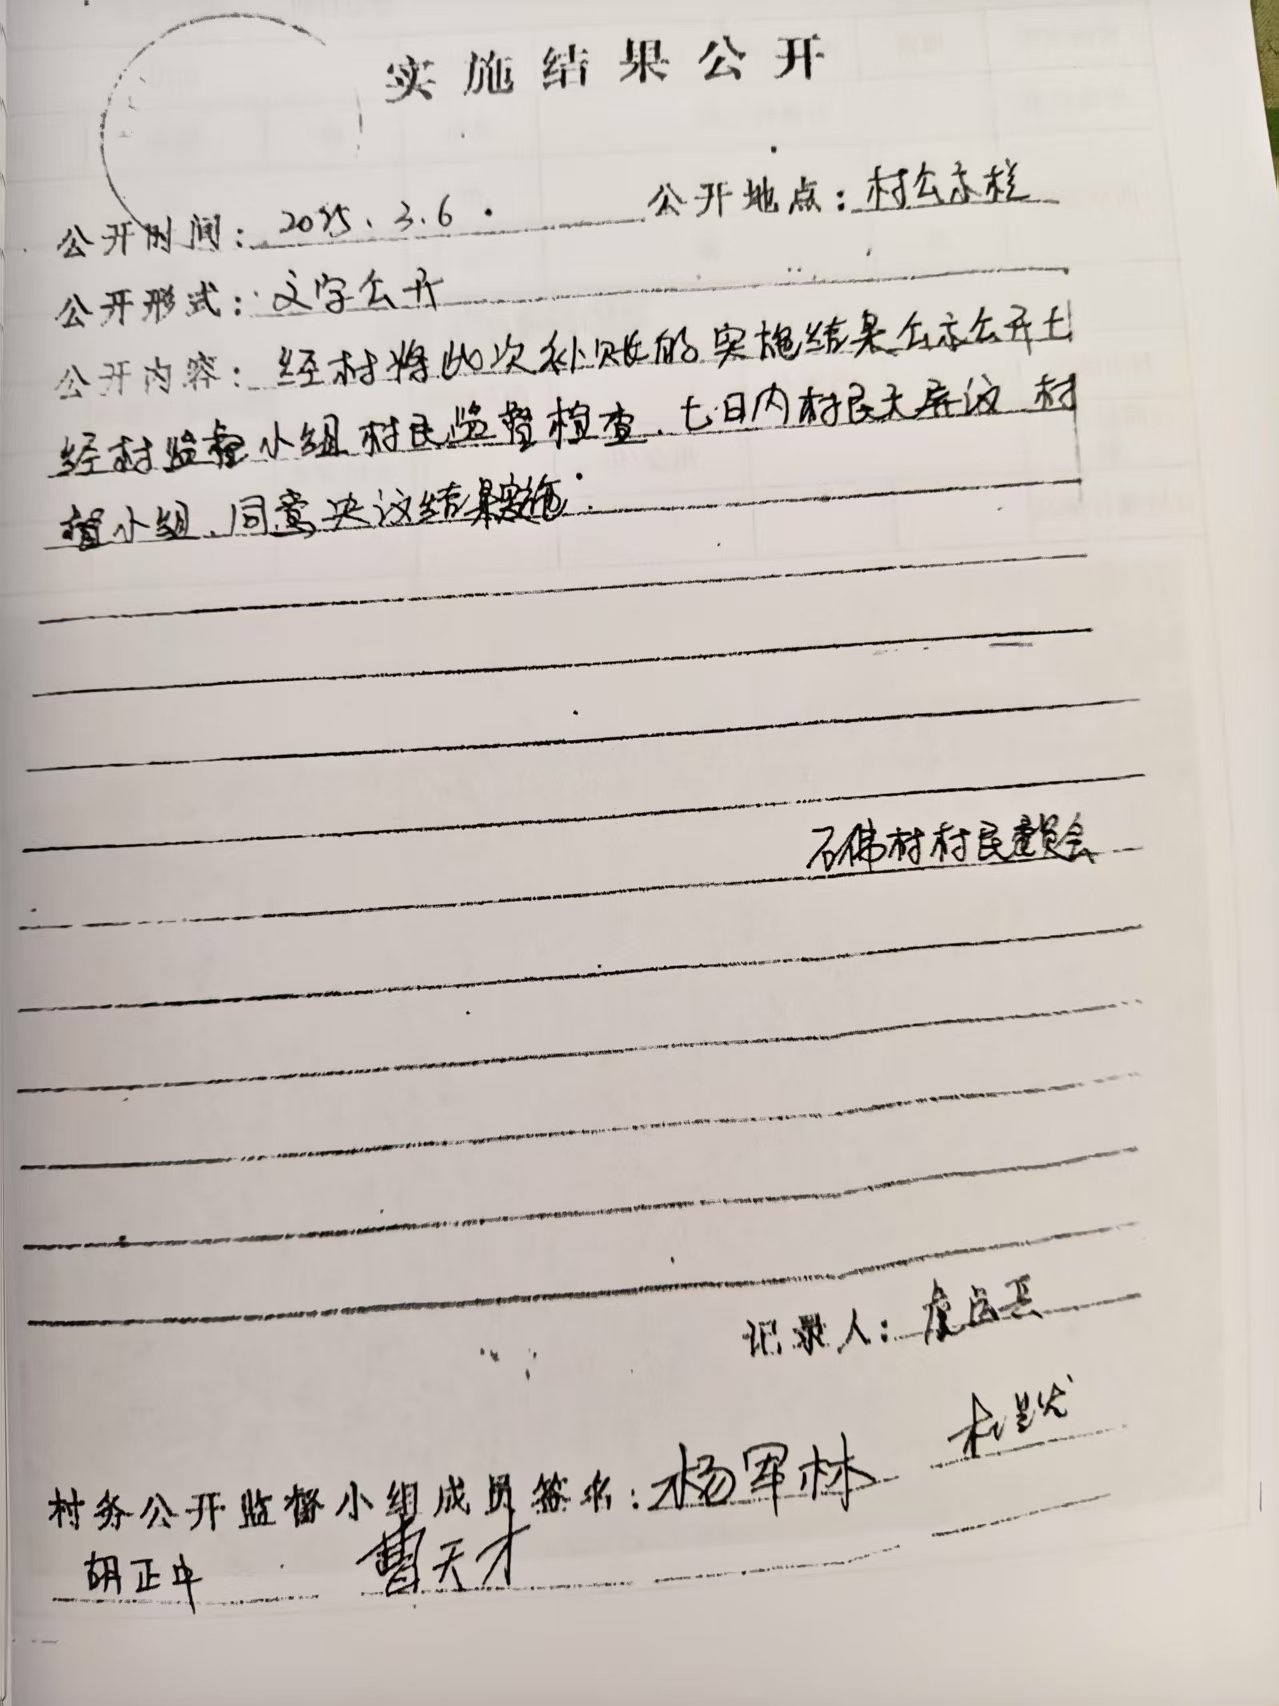 实施结果公开
公开时间：2025.3.6. 公开地点：村公示栏
公开形式：文字公开
公开内容：经村将此次补账的实施结果公示公开
经村监督小组村民监督检查，七日内村民无异议 村
督小组，同意决议结果实施.
石佛村村民委员会
记录人：
村务公开监督小组成员签名：杨军林
胡正中 曹天才